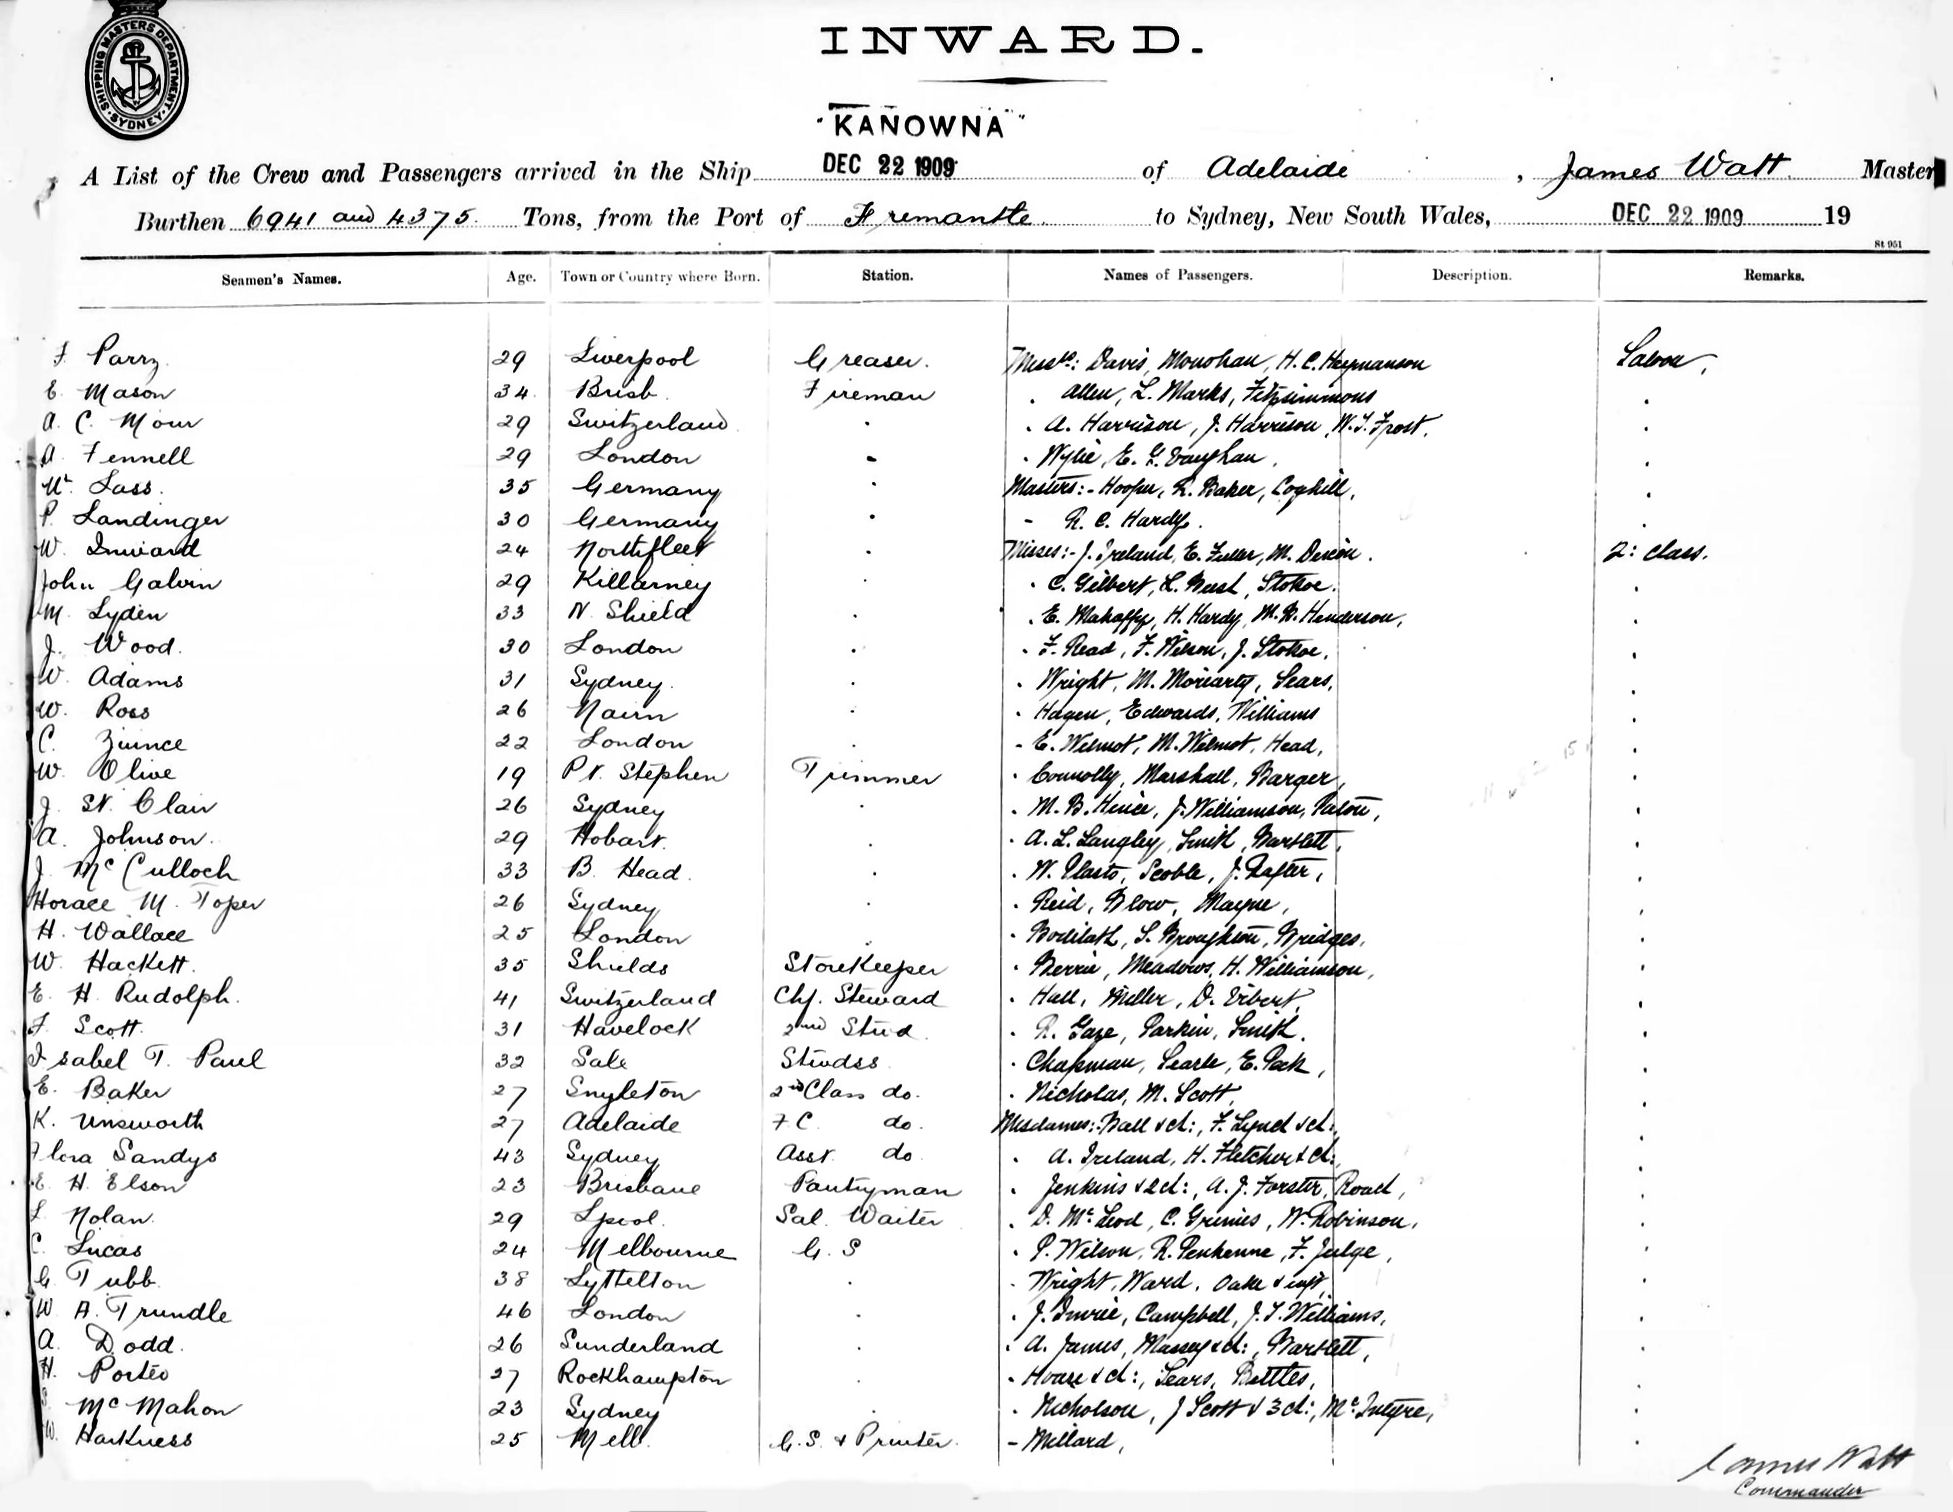 SHIPPING MASTERS DEPARTMENT
SYDNEY
INWARD.
"KANOWNA"
A List of the Crew and Passengers arrived in the Ship DEC 22 1909 of Adelaide, James Watt. Master
Burthen 6941 and 4375. Tons, from the Port of Fremantle to Sydney, New South Wales, DEC 22 1909 19
St 951
Seamen's Names. Age. Town or Country where Born. Station. Names of Passengers. Description. Remarks.
F. Parry. 29 Liverpool Greaser. Davis, Monohan, H. C. Heymanson Saloon,
E. Mason 34. Brisb. Fireman Allen, L. Marks, Fitzsimmons
A. C. Mour 29 Switzerland A. Harrison, J. Harrison, W. J. Frost.
A. Fennell 29 London Wylie, E. G. Vaughan.
Lass. 35 Germany Masters:- Hooper, R. Baker, Coghill,
P. Landinger 30 Germany R. C. Hardy.
W. Inward 24 Northfleet Misses:- J. Ireland, E. Fuller, M. 2: Class.
John Galvin 29 Killarney C. Gilbert, L. West, Stokoe.
M. Lyden 33 N. Shield E. Mahaffy, H. Hardy, Henderson,
J. Wood. 30 London F. Read, F. Wilson, J. Stokoe,
W. Adams 31 Sydney. Wright, M. Moriarty, Sears,
W. Ross 26 Nairn Hagen, Edwards, Williams
C. 22 London E. Wilmot, M. Wilmot, Head,
W. Olive 19 Pt. Stephen Trimmer Connolly, Marshall, Barger,
J. St. Clair 26 Sydney M. B. J. Williamson, Paton,
A. Johnson. 29 Hobart. A. L. Langley, Smith, Bartlett,
J. McCulloch 33 B. Head. W. Plasto, Scoble, J. Rafter,
Horace M. Toper 26 Sydney Reid, Blow, Mayne,
H. Wallace 25 London S. Broughton, Bridges,
W. Hackett. 35 Shields Storekeeper Berrie, Meadows, H. Williamson,
E. H. Rudolph. 41 Switzerland Chf. Steward Hall, Miller, D. Vibert,
F. Scott. 31 Havelock 2nd Stwd. R. Gaze, Parkin, Smith.
Isabel T. Paul 32 Sale Stwdss Chapman, Searle, E. Peck,
E. Baker 27 Singleton 2nd Class do. Nicholas, M. Scott,
K. Unsworth 27 Adelaide F C do. Mesdames:- Ball & ch:, F. Lynch & ch:,
Flora Sandys 43 Sydney Asst. do A. Ireland, H. Fletcher & ch:,
E. H. Elson 23 Brisbane Pantryman Jenkins & 2 ch:, A. J. Forster, Roach,
L. Nolan. 29 Lpool. Sal. Waiter D. McLeod, C. Grimes, W. Robinson,
C. Lucas 24 Melbourne G. S P. Wilson, R. Penhenna, F. Judge,
G. Tubb. 38 Lyttelton Wright, Ward, Oake & inft,
W. A. Trundle 46 London J. Imrie, Campbell, J. T. Williams,
A. Dodd. 26 Sunderland A. James, Massey & ch:, Bartlett,
H. Porteo 27 Rockhampton Hoare & ch:, Sears, Bettles,
McMahon 23 Sydney Nicholson, J Scott & 3 ch:, McIntyre,
W. Harkness 25 Melb. G. S. & Printer. Millard,
James Watt
Commander